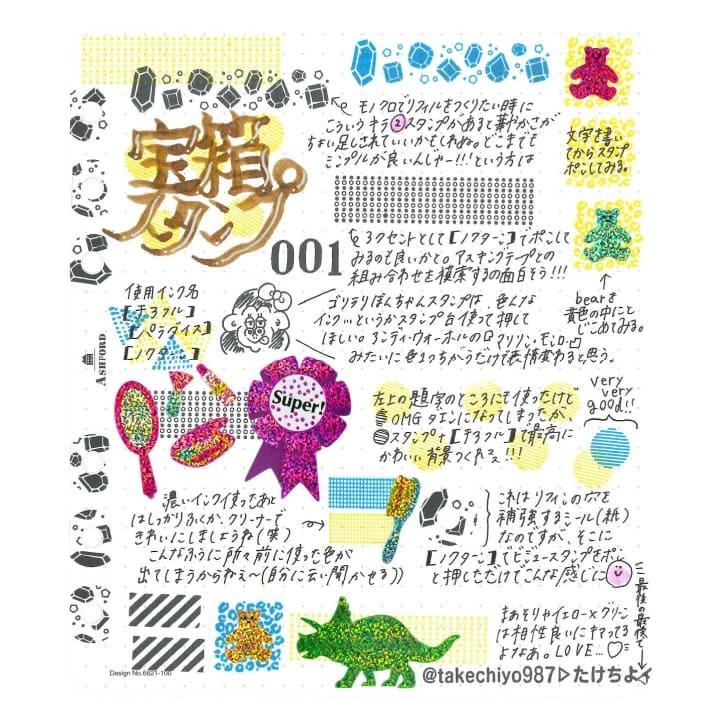 モノクロでリフィルをつくりたい時に
こういうキラ②スタンプがあると華やかさが
ちょい足しされていいかもしれぬ。どこまでも
シンプルが良いんじゃー!!!という方は
文字を書い
てからスタンプ
ポンしてみる。
宝箱
スタンプ
001
アクセントとして【ノクターン】でポンして
みるのも良いかと。マスキングテープとの
組み合わせを模索するの面白そう!!!
bearを
黄色の中にと
じこめてみる。
使用インク名
【チろフル】
【パラダイス】
【ノクターン】
ASHFORD
ゴリラりぼんちゃんスタンプは、色んな
インク…というかスタンプ台使って押して
ほしい。アンディ・ウォーホルのロマリリン・モンローロ
みたいに色1つちがうだけで表情変わると思う。
Super!
左上の題字のところにも使ったけど
OMG ダエンになってしまったが、
スタンプ+【チろフル】で最高に
かわいい背景つくれるぇ!!!
very
very
good!!
濃いインク使ったあと
はしっかりふくか、クリーナーで
きれいにしましょうね(笑)
こんなふうに所々前に使った色が
出てしまうからねえ〜(自分に云い聞かせる))
これはリフィルの穴を
補強するシール(紙)
なのですが、そこに
【ノクターン】でビジュースタンプをポン
と押しただけでこんな感じに
最後の最後で
まぁそりゃイエロー×グリーン
は相性良いにキマってる
よなぁ。LOVE...♡
Design No.6621-100
@takechiyo987▷たけちよ